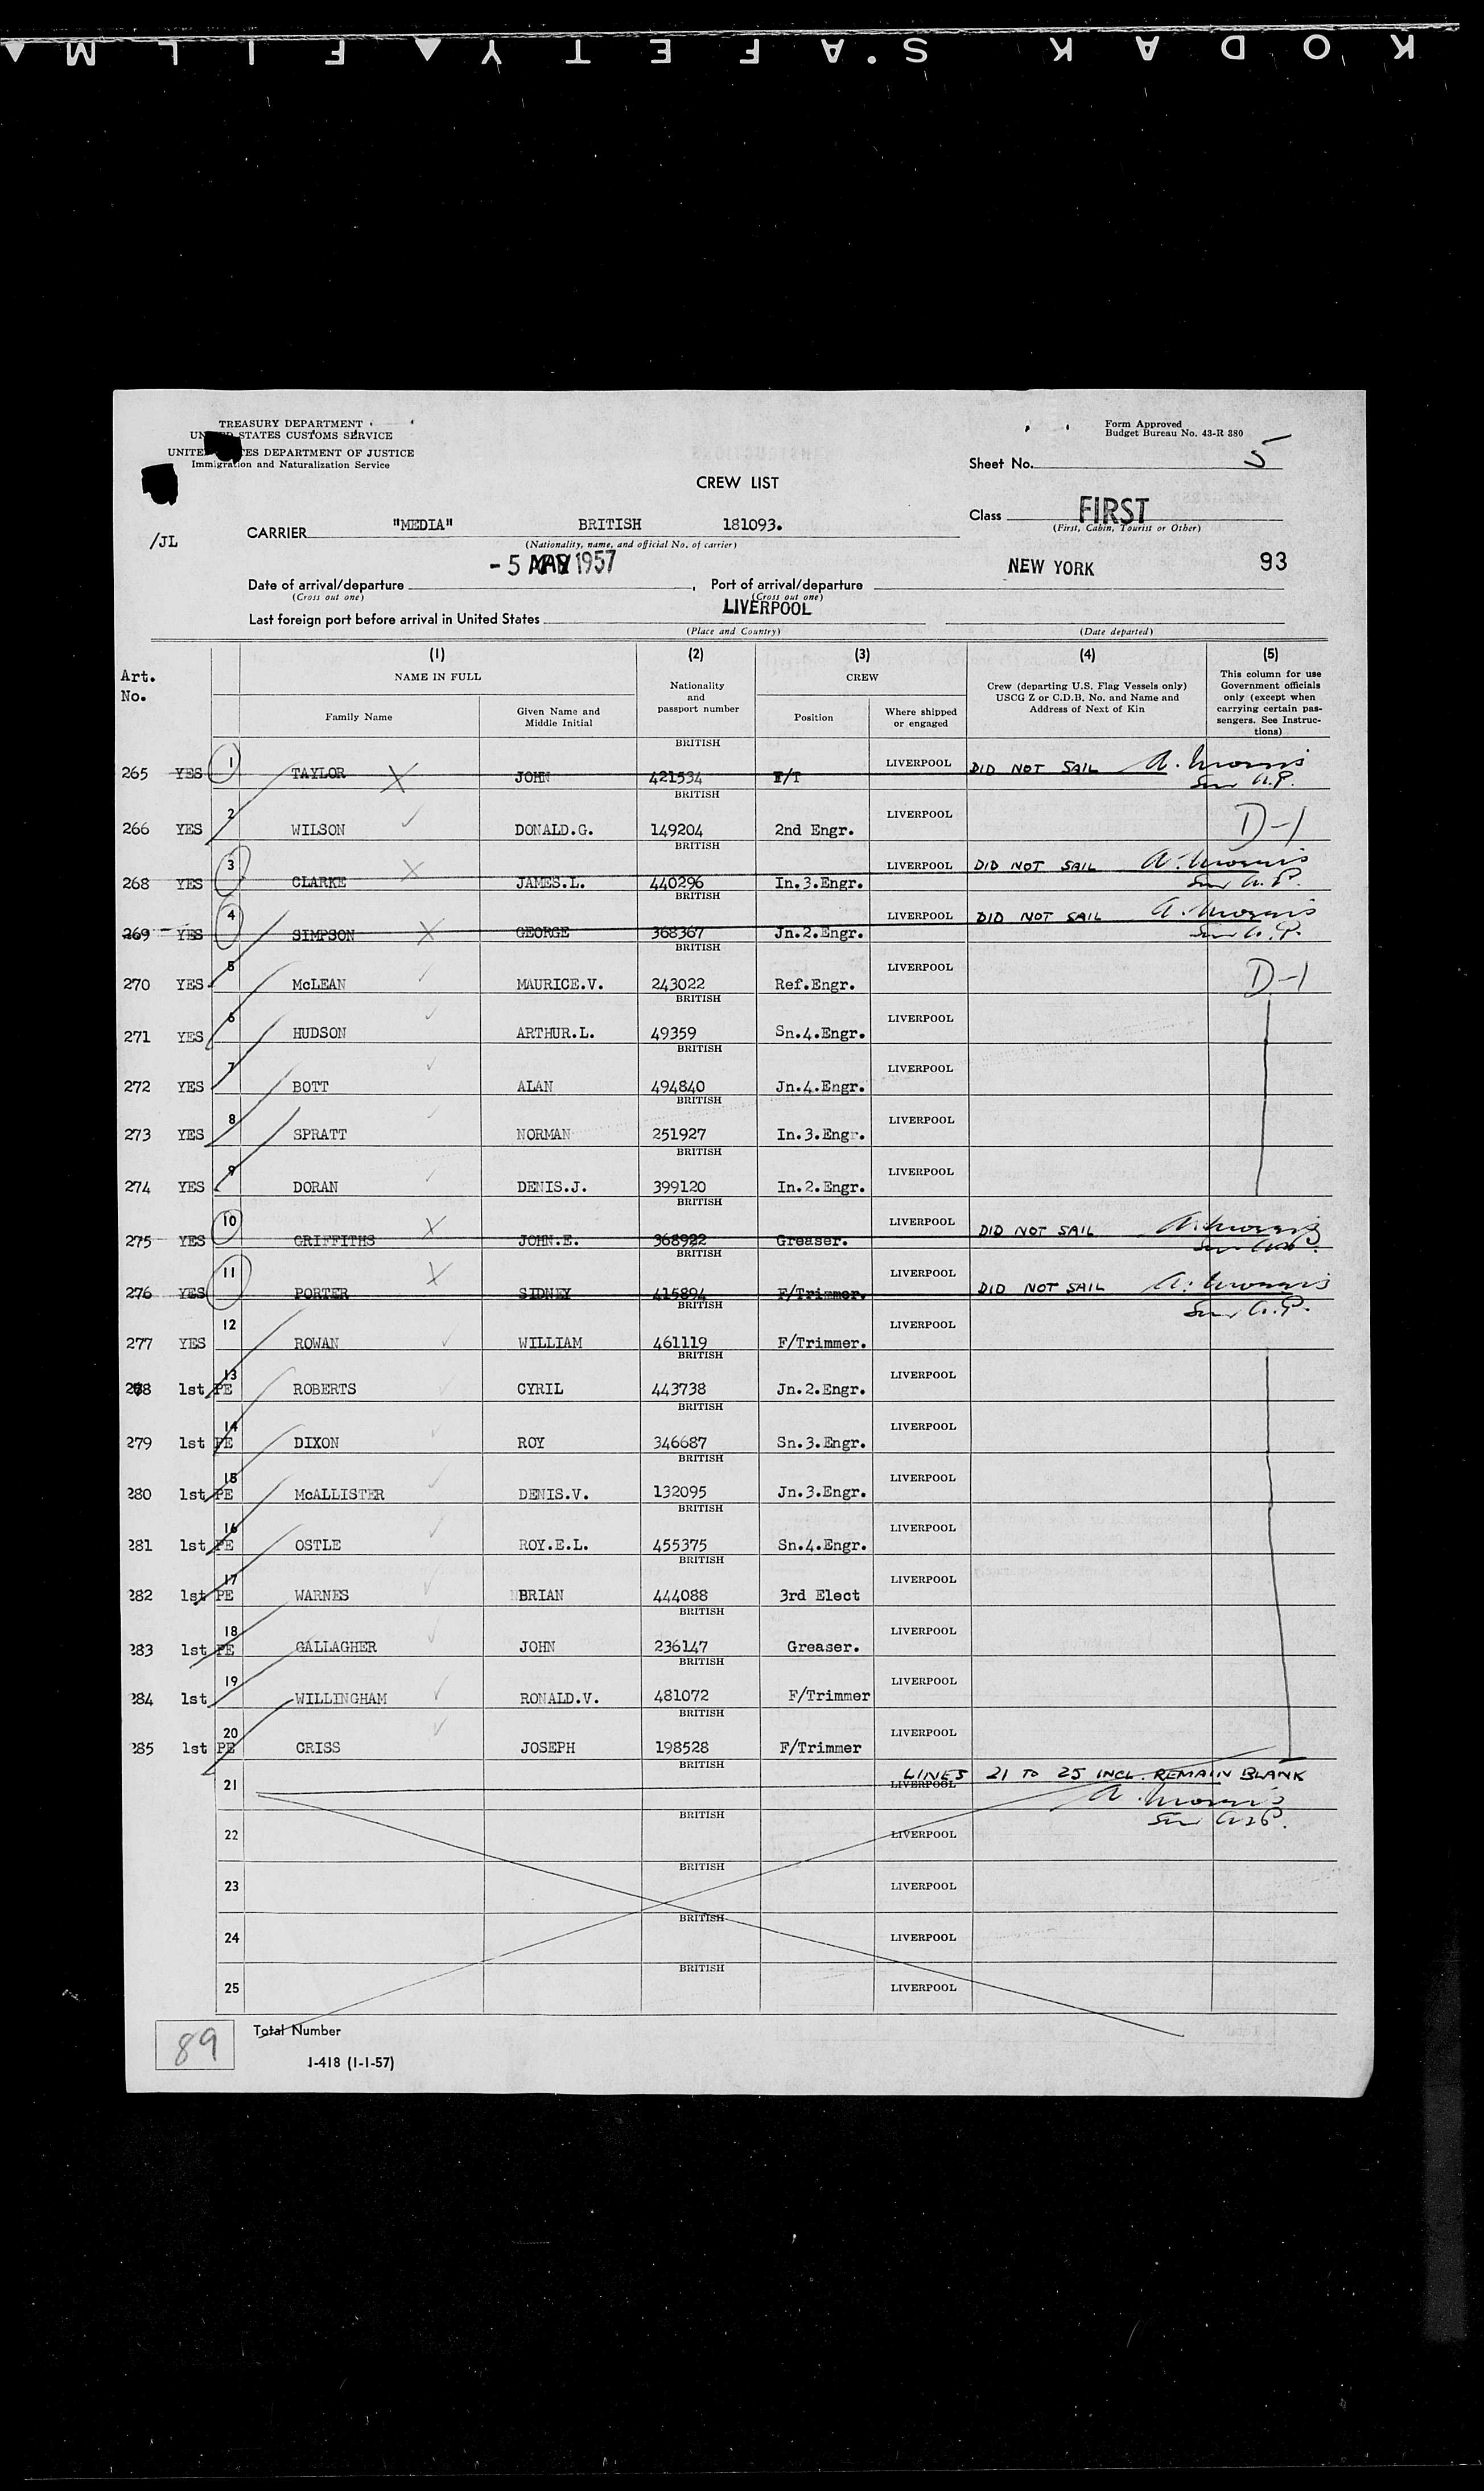 KODAK S.AFETY FILM
TREASURY DEPARTMENT
UNITED STATES CUSTOMS SERVICE
UNITED STATES DEPARTMENT OF JUSTICE
Immigration and Naturalization Service
Form Approved
Budget Bureau No. 43-R 380
Sheet No. 5
CREW LIST
Class FIRST
(First, Cabin, Tourist or Other)
/JL
CARRIER "MEDIA" BRITISH 181093.
(Nationality, name, and official No. of carrier)
Date of arrival/departure - 5 MAY 1957, Port of arrival/departure NEW YORK 93
(Cross out one) (Cross out one)
Last foreign port before arrival in United States LIVERPOOL
(Place and Country) (Date departed)
Art. No.
(1) NAME IN FULL
Family Name
Given Name and Middle Initial
(2) Nationality and passport number
(3) CREW
Position
Where shipped or engaged
(4) Crew (departing U.S. Flag Vessels only) USCG Z or C.D.B. No. and Name and Address of Next of Kin
(5) This column for use Government officials only (except when carrying certain passengers. See Instructions)
265 YES 1 TAYLOR X JOHN BRITISH 421534 F/T LIVERPOOL DID NOT SAIL A. Morris
266 YES 2 WILSON DONALD.G. BRITISH 149204 2nd Engr. LIVERPOOL D-1
268 YES 3 CLARKE X JAMES.L. BRITISH 440296 In.3.Engr. LIVERPOOL DID NOT SAIL A. Morris
269 YES 4 SIMPSON X GEORGE BRITISH 368367 Jn.2.Engr. LIVERPOOL DID NOT SAIL A. Morris
270 YES 5 McLEAN MAURICE.V. BRITISH 243022 Ref.Engr. LIVERPOOL D-1
271 YES 6 HUDSON ARTHUR.L. BRITISH 49359 Sn.4.Engr. LIVERPOOL
272 YES 7 BOTT ALAN BRITISH 494840 Jn.4.Engr. LIVERPOOL
273 YES 8 SPRATT NORMAN BRITISH 251927 In.3.Engr. LIVERPOOL
274 YES 9 DORAN DENIS.J. BRITISH 399120 In.2.Engr. LIVERPOOL
275 YES 10 GRIFFITHS X JOHN.E. BRITISH 368922 Greaser. LIVERPOOL DID NOT SAIL A. Morris
276 YES 11 PORTER X SIDNEY BRITISH 415894 F/Trimmer. LIVERPOOL DID NOT SAIL A. Morris
277 YES 12 ROWAN WILLIAM BRITISH 461119 F/Trimmer. LIVERPOOL
278 1st PE 13 ROBERTS CYRIL BRITISH 443738 Jn.2.Engr. LIVERPOOL
279 1st PE 14 DIXON ROY BRITISH 346687 Sn.3.Engr. LIVERPOOL
280 1st PE 15 McALLISTER DENIS.V. BRITISH 132095 Jn.3.Engr. LIVERPOOL
281 1st PE 16 OSTLE ROY.E.L. BRITISH 455375 Sn.4.Engr. LIVERPOOL
282 1st PE 17 WARNES BRIAN BRITISH 444088 3rd Elect LIVERPOOL
283 1st PE 18 GALLAGHER JOHN BRITISH 236147 Greaser. LIVERPOOL
284 1st 19 WILLINGHAM RONALD.V. BRITISH 481072 F/Trimmer LIVERPOOL
285 1st PE 20 CRISS JOSEPH BRITISH 198528 F/Trimmer LIVERPOOL
21 BRITISH LIVERPOOL LINES 21 TO 25 INCL. REMAIN BLANK
A. Morris
22 BRITISH LIVERPOOL
23 BRITISH LIVERPOOL
24 BRITISH LIVERPOOL
25 BRITISH LIVERPOOL
89
Total Number
I-418 (1-1-57)